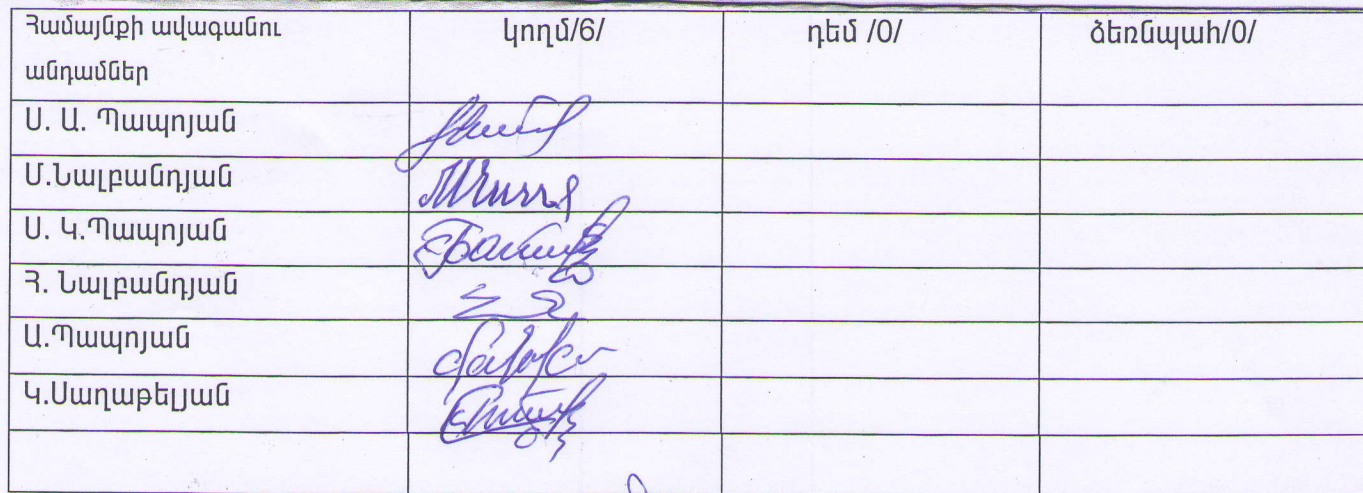 Համայնքի ավագանու կողմ/6/ դեմ /0/ ձեռնպահ/0/
անդամներ
Ս. Ա. Պապոյան
Մ.Նալբանդյան
Ս. Կ.Պապոյան
Հ. Նալբանդյան
Ա.Պապոյան
Կ.Սաղաթելյան